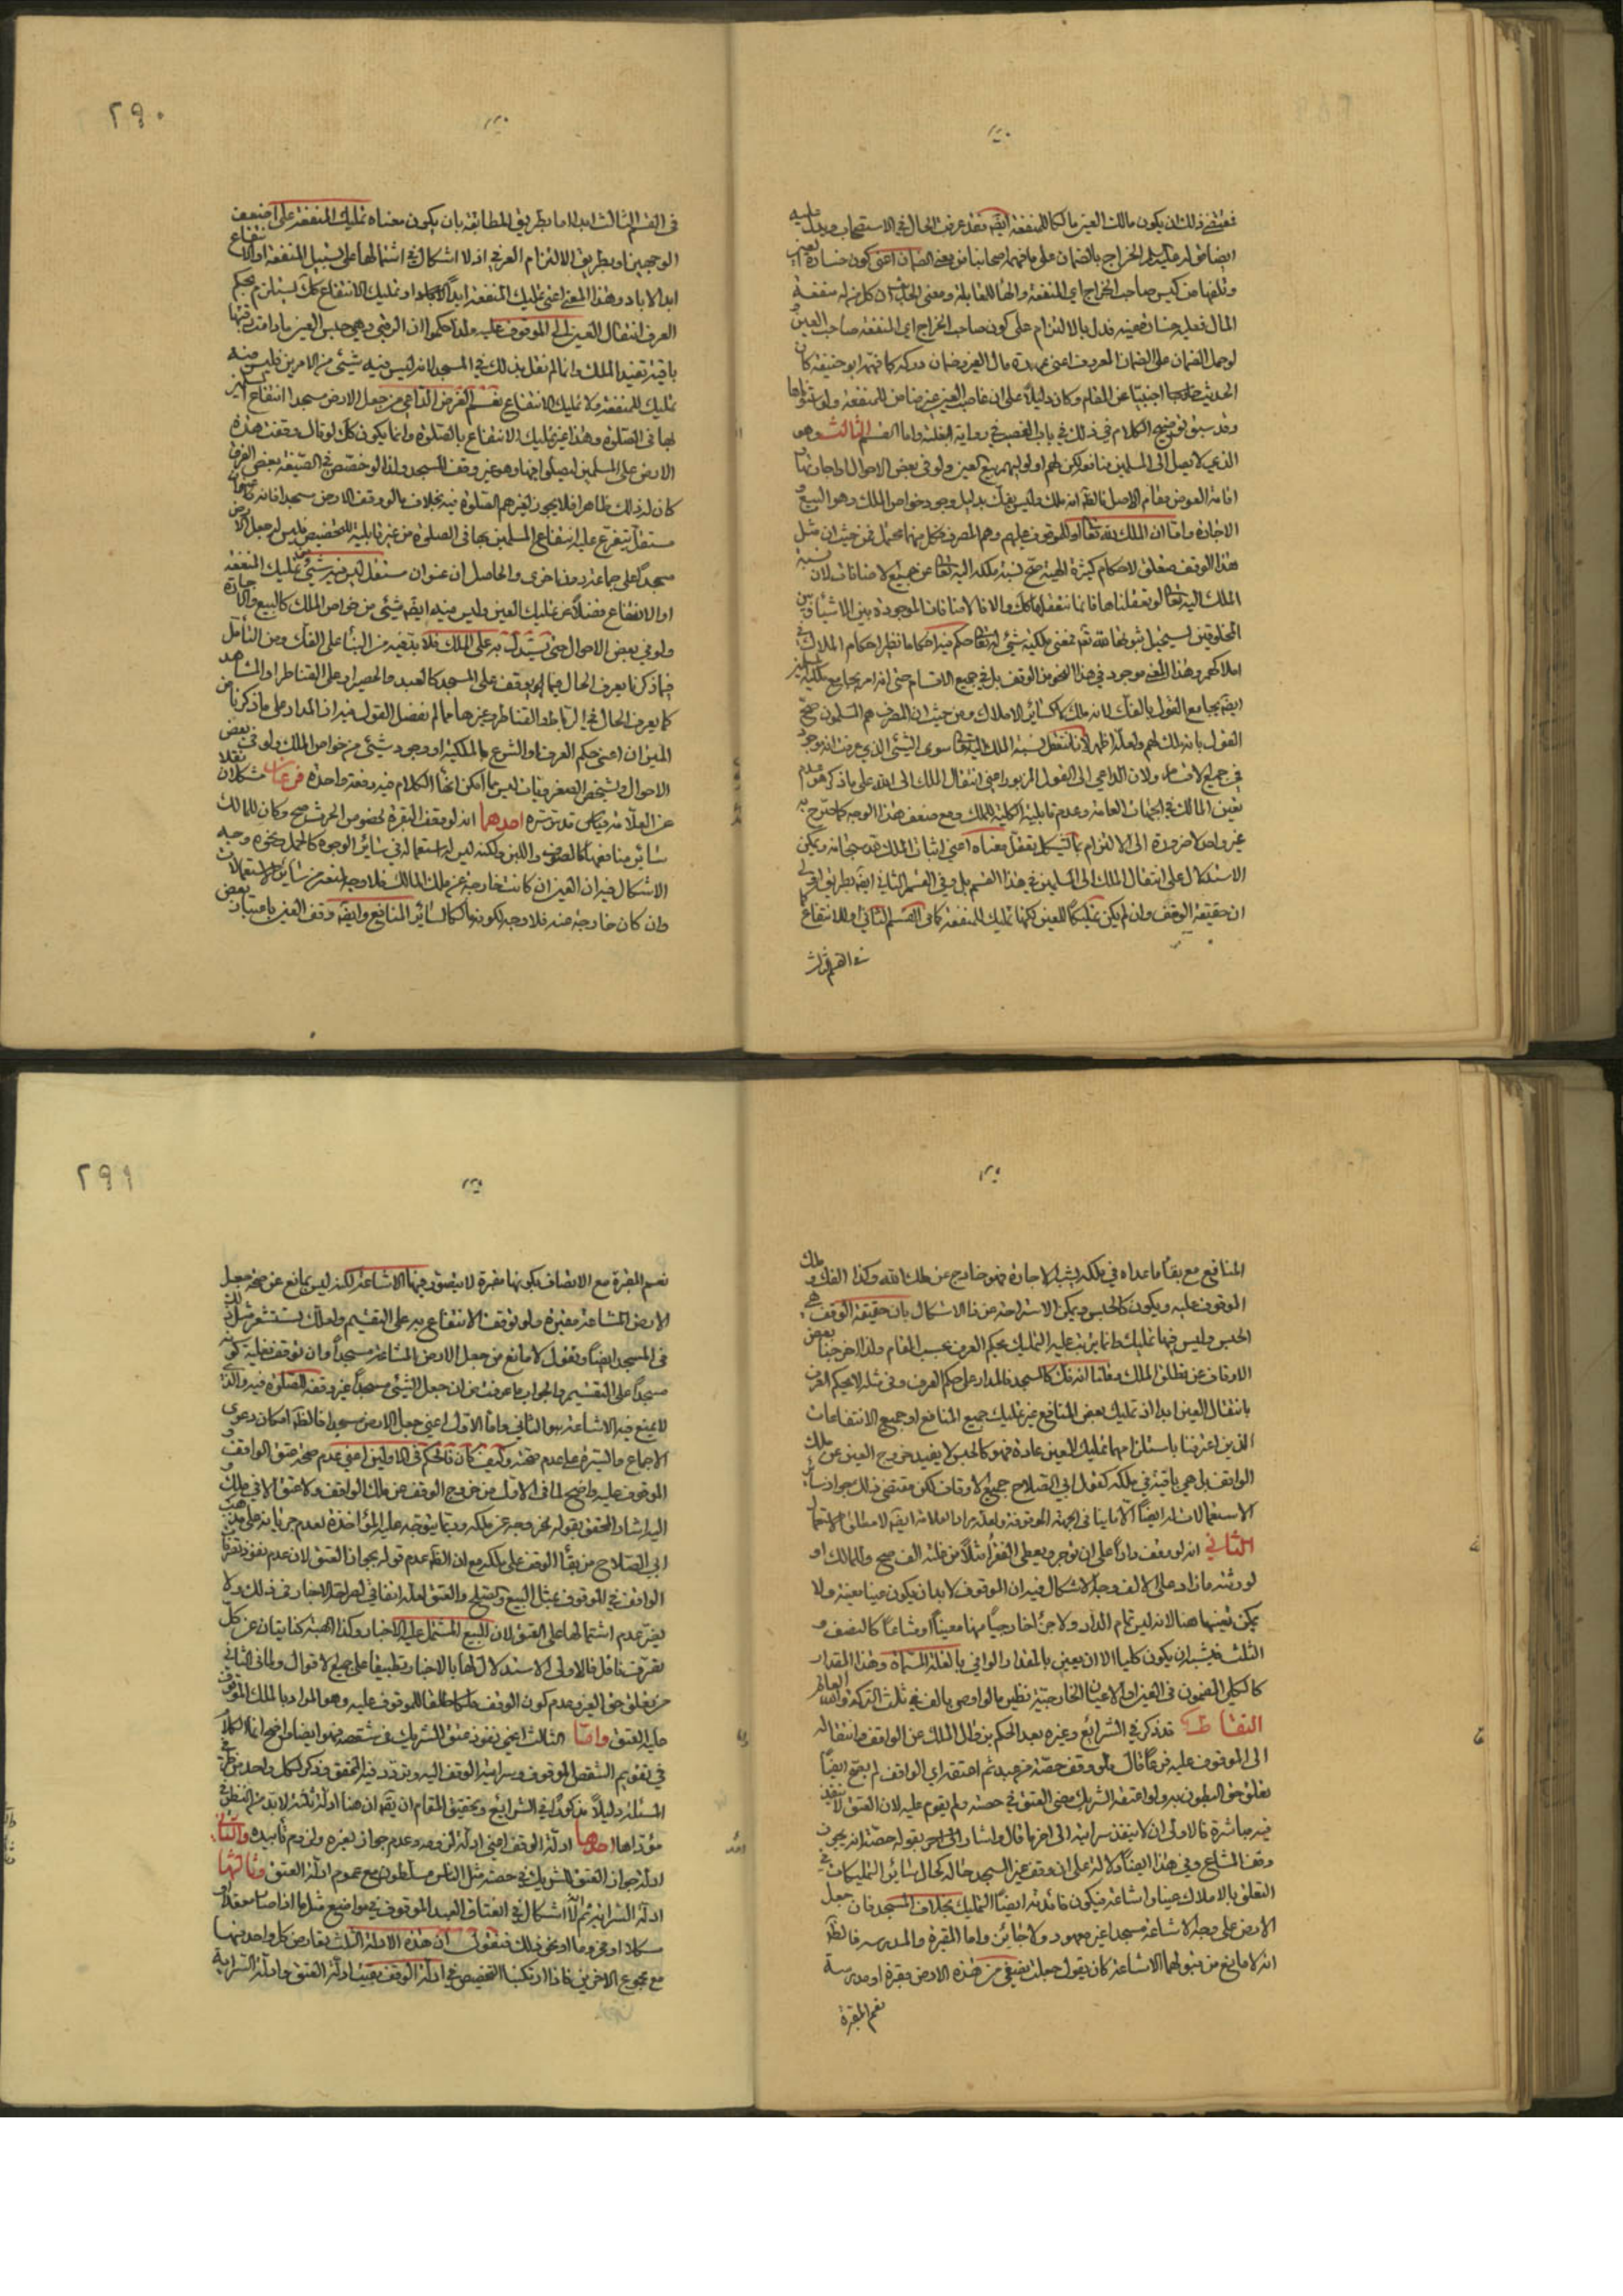 فمقتضى ذلك ان يكون مالك العين مالكا للمنفعة ايضا وقد عرفت الحال في الاستصحاب ويدل عليه
ايضا
وتلفها من كيس صاحب الخراج اي المنفعة
المال فعليه خسارته فيدل بالالتزام على كون صاحب الخراج اي المنفعة صاحب العين و
لو حمل الضمان على الضمان المعروف اعني عهدة مال الغير وضمان دركه كما فهمه ابو حنيفة كان
الحديث اجنبيا عن المقام وكان دليلا على ان غاصب العين غير ضامن للمنفعة ولو استوفاها
وقد سبق توضيح الكلام في ذلك في باب الغصب في رواية البغلة واما القسم الثالث وهو
الذي لا يصل الى المسلمين منافعه لكن لهم او لوليهم بيع العين ولو في بعض الاحوال او اجارتها و
اقامة العوض مقام الاصل فالظ انه ملك وليس بفك بدليل وجود خواص الملك وهو البيع و
الاجارة واما ان الملك لله تعالى او للموقوف عليهم وهم المصرف فكل منهما محتمل فمن حيث ان مثل
هذا الوقف متعلق لاحكام كثيرة الهية صح نسبة ملكه اليه تعالى عن جميع الاضافات لان نسبة
الملك اليه تعالى لو تعقلناها فانما نتعقلها كك والا فالاضافات الموجودة بين الاشياء وبين
المخلوقين يستحيل ثبوتها لله تعالى فمعنى ملكية شيء له تعالى حكم فيه احكاما نظير احكام الملاك في
املاكهم وهذا المعنى موجود في هذا النحو من الوقف بل في جميع الاقسام حتى انه امر يجامع ملكية الغير
ايضا يجامع القول بالفك لانه ملك كسائر الاملاك ومن حيث ان المصرف هم المسلمون صح
القول بانه ملك لهم ولعله اظهر لانا لا نتعقل نسبة الملك اليه تعالى سوى الشيء الذي عرفت انه موجود
في جميع الاقسام ولان الداعي الى القول المزبور اعني انتقال الملك الى الله على ما ذكر هو عدم
تعين المالك في الجهات العامة وعدم قابلية الكلية للملك ومع ضعف هذا الوجه كما صرح به
غير واحد لا ضرورة الى الالتزام بما يشكل تعقل معناه اعني اثبات الملك له سبحانه ويمكن
الاستدلال على انتقال الملك الى المسلمين في هذا القسم بل وفي القسم الثاني ايضا بطريق اخر
ان حقيقة الوقف وان لم يكن تمليكا للعين لكنها تمليك للمنفعة كما في القسم الثاني او للانتفاع كما
في القسم الثالث
٢٩٠
في القسم الثالث ابدا اما بطريق المطابقة بان يكون معناه تمليك المنفعة على اضعف
الوجهين او بطريق الالتزام العرفي اذ لا اشكال في اشتمالها على تسبيل المنفعة او الانتفاع
ابد الاباد وهذا المعنى اعني تمليك المنفعة ابدا كاملا او تمليك الانتفاع كك يستلزم بحكم
العرف انتقال العين الى الموقوف عليه ولذا حكموا ان الرقبى وهي حبس العين ما دامت رقبتها
باقية تفيد الملك وانما لم نقل بذلك في المسجد لانه ليس فيه شيء من الامرين فليس فيه
تمليك للمنفعة ولا تمليك الانتفاع نعم الغرض الداعي من جعل الارض مسجدا انتفاع المسلمين
بها في الصلوة وهذا غير تمليك الانتفاع بالصلوة وانما يكون كك لو قال وقفت هذه
الارض على المسلمين ليصلوا فيها وهو غير وقف المسجد ولذا لو خصص في الصيغة بعض الفرق
كان لذلك ظاهرا فلا يجوز لغيرهم الصلوة فيه بخلاف ما لو وقف الارض مسجدا فانه عنوان
مستقل يتفرع عليه انتفاع المسلمين بها في الصلوة من غير قابلية للتخصيص فليس له جعل الارض
مسجدا على جماعة دون اخرى والحاصل ان عنوان مستقل ليس فيه شيء من تمليك المنفعة
او الانتفاع فضلا عن تمليك العين وليس فيه ايضا شيء من خواص الملك كالبيع والاجارة
ولو في بعض الاحوال حتى يستدل به على الملك فلا بد فيه من البناء على الفك ومن التأمل
فيما ذكرنا يعرف الحال فيما لو وقف على المسجد كالعبد والحصير او على القناطر او المشاهد
كما يعرف الحال في الرباط والقناطر وغيرها مما لم نفصل القول فيه اذ المدار على ما ذكرنا من
الميزان اعني حكم العرف او الشرع بالملكية او وجود شيء من خواص الملك ولو في بعض
الاحوال وتشخيص الصغريات ليس مما امكن انهاء الكلام فيه دفعة واحدة فرعان مشكلان نقلا
عن العلامة قدس سره احدهما انه لو وقف البقرة لخصوص الحرث صح وكان للمالك
سائر منافعها كالصوف واللبن ولكنه ليس له استعماله في سائر الوجوه كالحمل ونحوه وجه
الاشكال فيه ان العين ان كانت خارجة عن ملك المالك فلا وجه لمنعه من سائر الاستعمالات
وان كان خارجة منه فلا وجه لكونه مالكا لسائر المنافع وايضا وقف العين باعتبار بعض
المنافع مع بقاء ما عداه في ملكه يشبه الاجارة فهو خارج عن ملك الله وكذا الفك وملك
الموقوف عليه ويكون كالحبس ويمكن الاستراحة عن ذا الاشكال بان حقيقة الوقف هي
الحبس وليس فيها تمليك وانما يترتب عليه التمليك بحكم العرف بحسب المقام ولذا اخرجنا بعض
الاوقاف عن مطلق الملك وقلنا انه فك كالمسجد فالمدار على حكم العرف وفي مثله لا يحكم العرف
بانتقال العين ابدا اذ تمليك بعض المنافع غير تمليك جميع المنافع او جميع الانتفاعات
الذين اعترفنا باستلزامهما تمليك العين عادة فهو كالحبس لا يفيد خروج العين عن ملك
الواقف بل هي باقية في ملكه كقول ابي الصلاح جميع الاوقاف لكن مقتضى ذلك جواز سائر
الاستعمالات له ايضا الا ما ينافي الجهة الموقوفة ولعله مراد العلامة ايضا لا مطلق الاستعمال
الثاني انه لو وقف دارا على ان توجر ويعطى الفقراء مثلا من غلته الف صح وللمالك او
لورثته ما زاد على الالف وجه الاشكال فيه ان الموقوف لا بد ان يكون عينا معينة ولا
يمكن تعينها هنا لانه ليس تمام الدار ولا جزءا خارجيا منها معينا او مشاعا كالنصف و
الثلث فيشبه ان يكون كليا الا ان يعين بالمقدار الوافي بالغلة المسماة وهذا المقدار
كالكلي المضمون في العين او الاعيان الخارجية نظير ما لو اوصى بالف في ثلث التركة والله العالم
التقاط قد ذكر في الشرائع وغيره بعد الحكم بزوال الملك عن الواقف وانتقاله
الى الموقوف عليه فرعا قال ولو وقف حصته من عبد ثم اعتقه اي الواقف لم يصح ايضا
لتعلق حق البطون به ولو اعتقه الشريك مضى العتق في حصته ولم يقوم عليه لان العتق لا ينفذ
فيه مباشرة فالاولى ان لا ينفذ سراية الى اخرها قال واشار الى اخر بقوله حصته انه يجوز
وقف المشاع وفي هذا ايضا دلالة على ان وقف غير المسجد حاله كحال سائر التمليكات في
التعلق بالاملاك عينا واشاعة فيكون فائدته ايضا التمليك بخلاف المسجد فان جعل
الارض على وجه الاشاعة مسجدا غير معهود ولا جائز واما المقبرة والمدرسة فالظ
انه لا مانع من قبولهما الاشاعة كان يقول جعلت نصفي من هذه الارض مقبرة او مدرسة
نعم المقبرة
٢٩١
نعم المقبرة مع الاتصاف بكونها مقبرة لا يتصور فيها الاشاعة لكنه ليس بمانع عن صحة جعل
الارض المشاعة مقبرة ولو توقف الانتفاع به على التقسيم ولعلك تستشعر مثل ذلك
في المسجد ايضا وتقول لا مانع من جعل الارض المشاعة مسجدا وان توقف فعلية كونه
مسجدا على التقسيم والجواب ما عرفت من ان جعل الشيء مسجدا غير وقفه للصلوة فيه والذي
لا يمنع فيه الاشاعة هو الثاني واما الاول اعني جعل الارض مسجدا فالظ امكان دعوى
الاجماع والسيرة على عدم صحته وكيف كان فالحكم في الاولين اعني عدم صحة عتق الواقف و
الموقوف عليه واضح لما في الاول من خروج الوقف عن ملك الواقف ولا عتق الا في ملك و
اليه اشار المحقق بقوله لخروجه عن ملكه وربما يتوجه عليه المؤاخذة لعدم جريانه على مذهب
ابي الصلاح من بقاء الوقف على ملكه مع ان الظ عدم قوله بجواز العتق لان عدم نفوذ تصرف
الواقف في الموقوف بمثل البيع والصلح والعتق لعله اتفاقي لصراحة الاخبار في ذلك ولا
يضر عدم اشتمالها على العتق لان البيع المشتمل عليه الاخبار وكذا الهبة كنايتان عن كل
تصرف ناقل فالاولى الاستدلال لها بالاخبار تطبيقا على جميع الاقوال ولما في الثاني
من تعلق حق الغير وعدم كون الوقف ملكا طلقا للموقوف عليه وهو المراد بالملك الموقوف
عليه العتق واما الثالث اعني نفوذ عتق الشريك في شقصه فهو ايضا واضح انما الكلام
في تقويم الشقص الموقوف وسراية الوقف اليه وتردد فيه المحقق وذكر لكل واحد من طرفي
المسئلة دليلا مذكورا في الشرائع وتحقيق المقام ان يقال ان هنا ادلة ثلثة لا بد من النظر في
مؤداها احدها ادلة الوقف اعني ادلة لزومه وعدم جواز تغيره ولزوم تأبيده والثاني
ادلة جواز العتق للشريك في حصته مثل الناس مسلطون مع عموم ادلة العتق وثالثها
ادلة السراية ثم لا اشكال في انعتاق العبد الموقوف في مواضع مثل ما اذا صار مقعدا او
منكلا او مجذوما او نحو ذلك فنقول ان هذه الادلة الثلث يتعارض كل واحد منها
مع مجموع الاخرين فاذا ارتكبنا التخصيص في ادلة الوقف بقيت ادلة العتق وادلة السراية